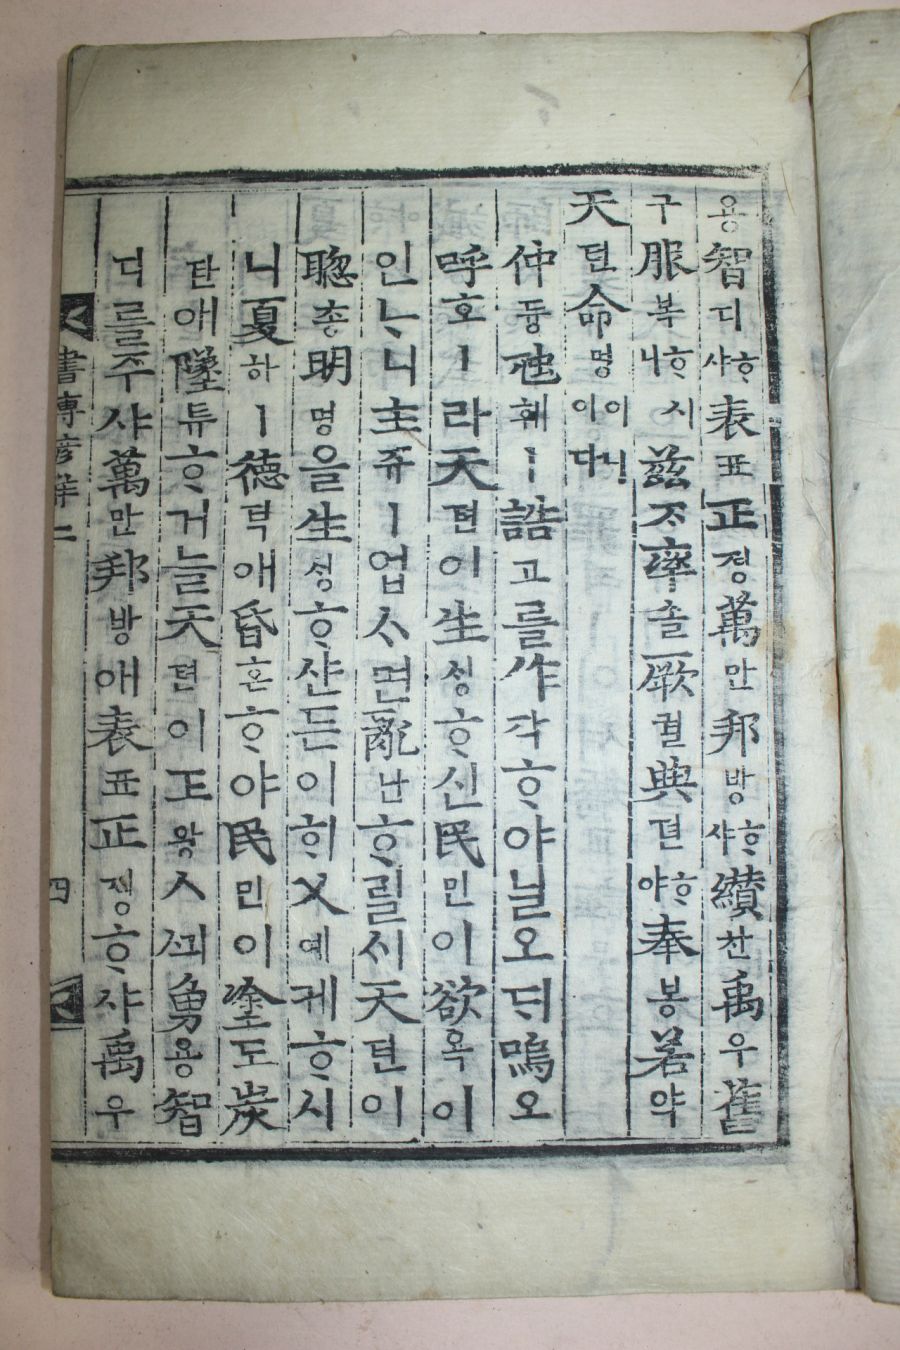 용智디ᄒᆞ샤表표正졍萬만邦방ᄒᆞ샤纘찬禹우舊
구服복ᄒᆞ시니茲ᄌᆞ率솔厥궐典뎐ᄒᆞ야奉봉若약
天텬命명이니이다
仲듕虺훼ㅣ誥고를作작ᄒᆞ야ᄀᆞᆯ오ᄃᆡ嗚오
呼호ㅣ라天텬이生ᄉᆡᆼᄒᆞ신民민이欲욕이
인ᄂᆞ니主쥬ㅣ업스면亂난ᄒᆞ릴ᄉᆡ天텬이
聰총明명을生ᄉᆡᆼᄒᆞ샨든이ᄒᆡ乂예케ᄒᆞ시
니夏하ㅣ德덕애昏혼ᄒᆞ야民민이塗도炭
탄애墜튜ᄒᆞ거늘天텬이王왕ㅅᄭᅴ勇용智
디를주샤萬만邦방애表표正졍ᄒᆞ샤禹우
書傳諺解二 四